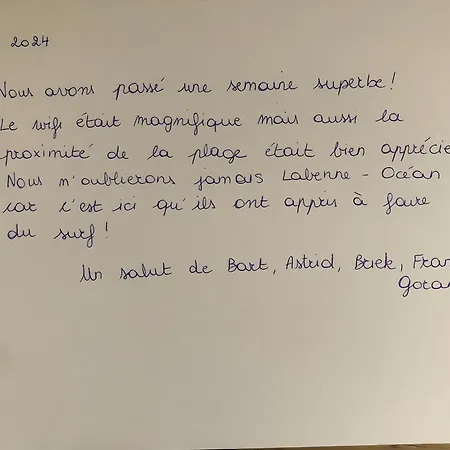 2024
Nous avons passé une semaine superbe!
Le wifi était magnifique mais aussi la
proximité de la plage était bien apprécié
Nous n'oublierons jamais Labenne - Océan
car c'est ici qu'ils ont appris à faire
du surf!
Un salut de Bart, Astrid, Briek, Fran
Goran